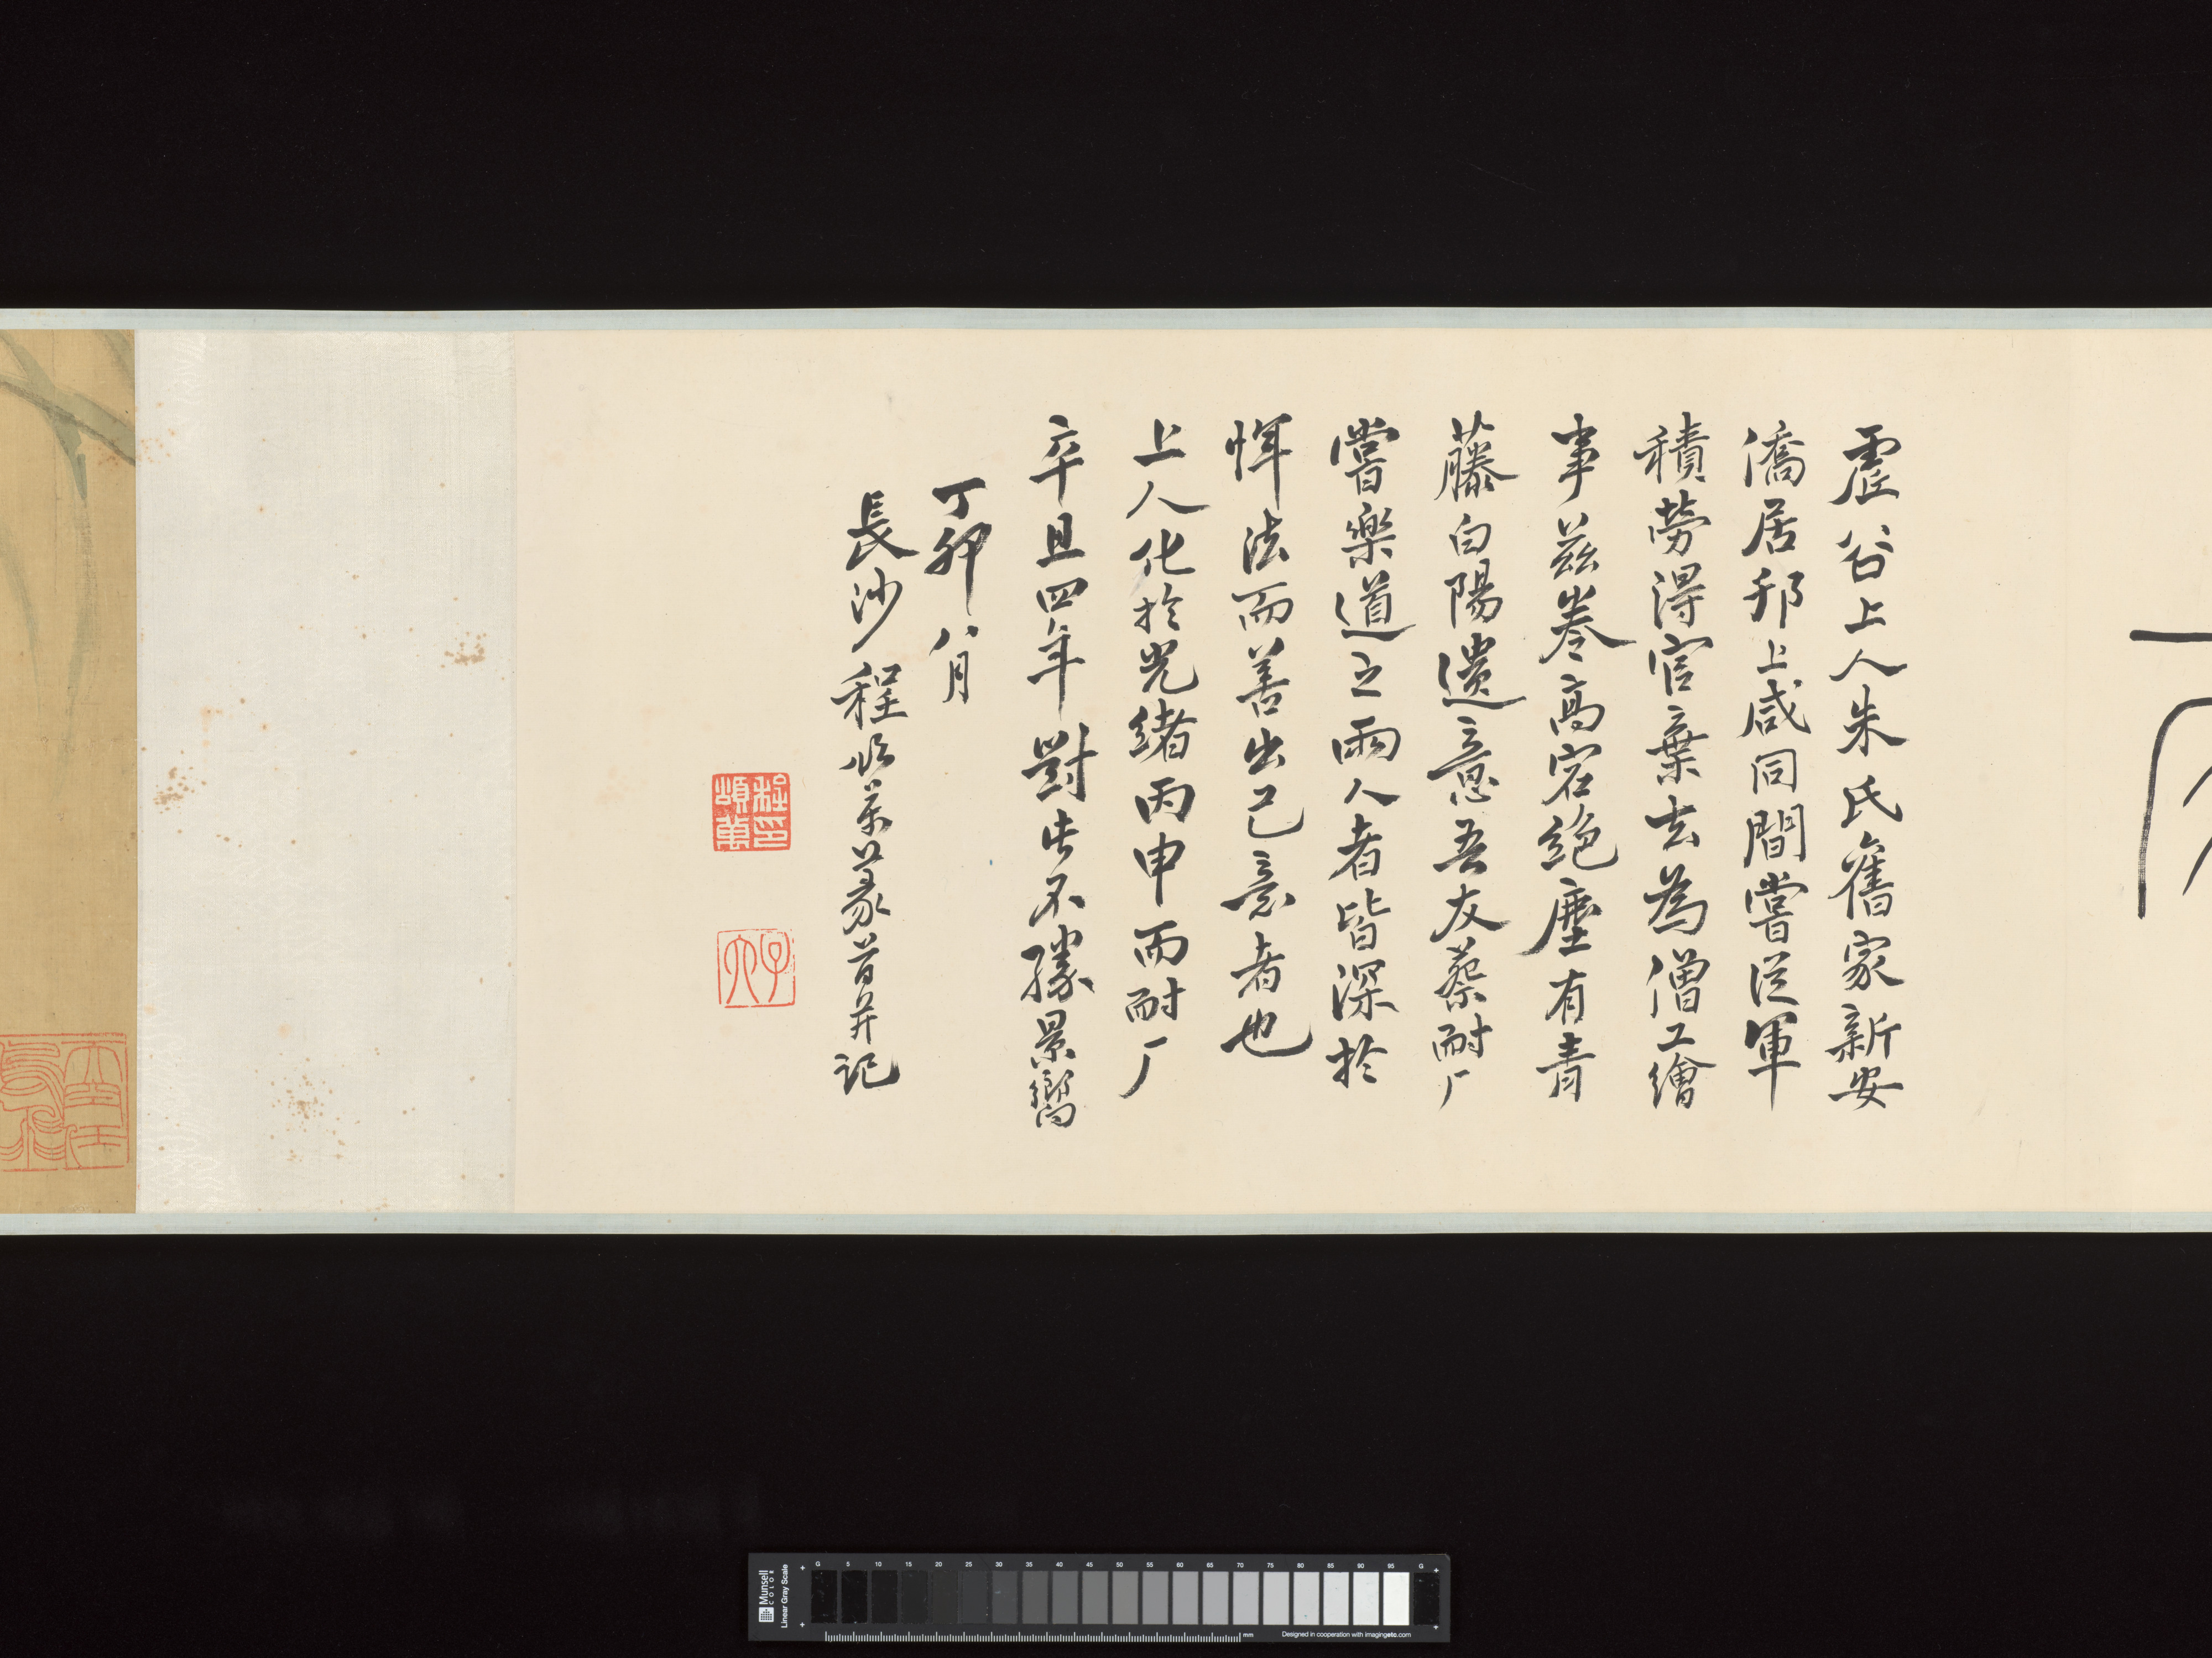 虛谷上人朱氏舊家新安
僑居邗上咸同間嘗從軍
積勞得官棄去為僧工繪
事茲卷高宕絕塵有青
藤白陽遺意吾友蔡耐厂
嘗樂道之兩人者皆深於
惲法而善出己意者也
上人化於光緒丙申而耐厂
卒且四年對此不勝景嚮
丁卯八月
長沙程頌萬篆首并記
程印頌萬
子大
Munsell COLOR
Linear Gray Scale
G 5 10 15 20 25 30 35 40 45 50 55 60 65 70 75 80 85 90 95 G
mm
Designed in cooperation with imagingetc.com